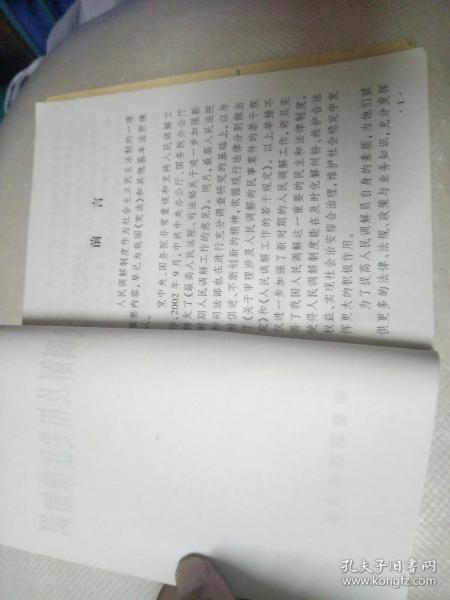 前言
人民调解制度作为社会主义民主法制的一项
重要内容，早已为我国《宪法》和其他基本法所确
认。
党中央、国务院非常重视和支持人民调解工
作，2002年9月，中共中央办公厅、国务院办公厅
转发了《最高人民法院、司法部关于进一步加强新
时期人民调解工作的意见》。同月，最高人民法院
和司法部也在进行充分调查研究的基础上，以与
时俱进、不断创新的精神，依据现行法律分别做出
了《关于审理涉及人民调解的民事案件的若干规
定》和《人民调解工作的若干规定》。以上举措不
仅进一步加强了新时期的人民调解工作，而且完
善了我国人民调解这一重要的民主和法律制度，
使得人民调解制度能在及时化解纠纷，维护合法
权益，实现社会治安综合治理，维护社会稳定中发
挥更大的积极作用。
为了提高人民调解员自身的素质，为他们提
供更多的法律、法规、政策与业务知识，充分发挥
· 1 ·
孔夫子旧书网
www.kongfz.com